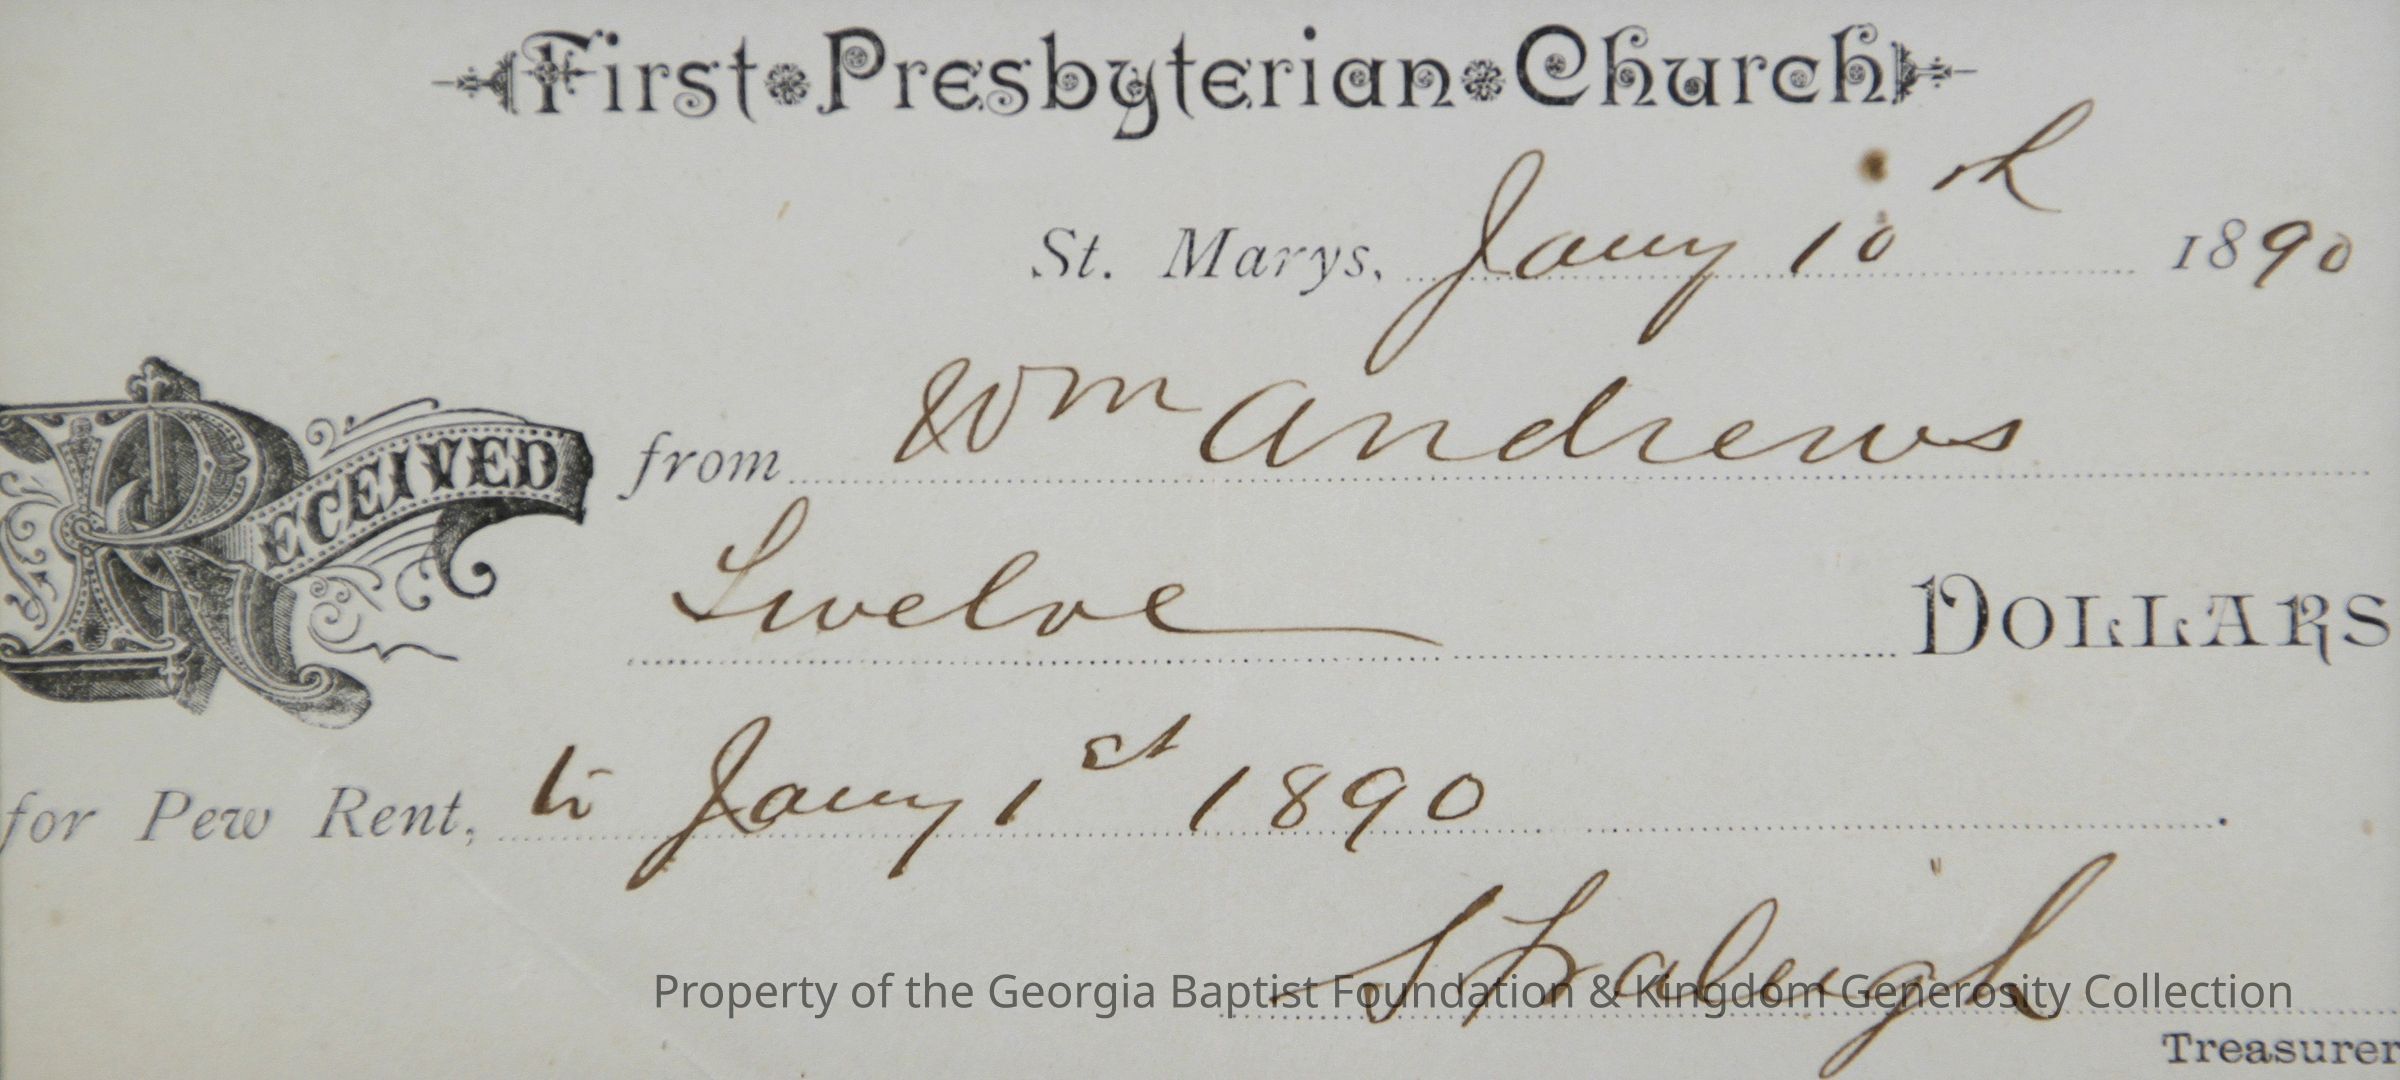 First Presbyterian Church
St. Marys, Jany 10th 1890
RECEIVED from Wm Andrews
Twelve DOLLARS
for Pew Rent, to Jany 1st 1890.
S Fraleigh
Property of the Georgia Baptist Foundation & Kingdom Generosity Collection
Treasurer